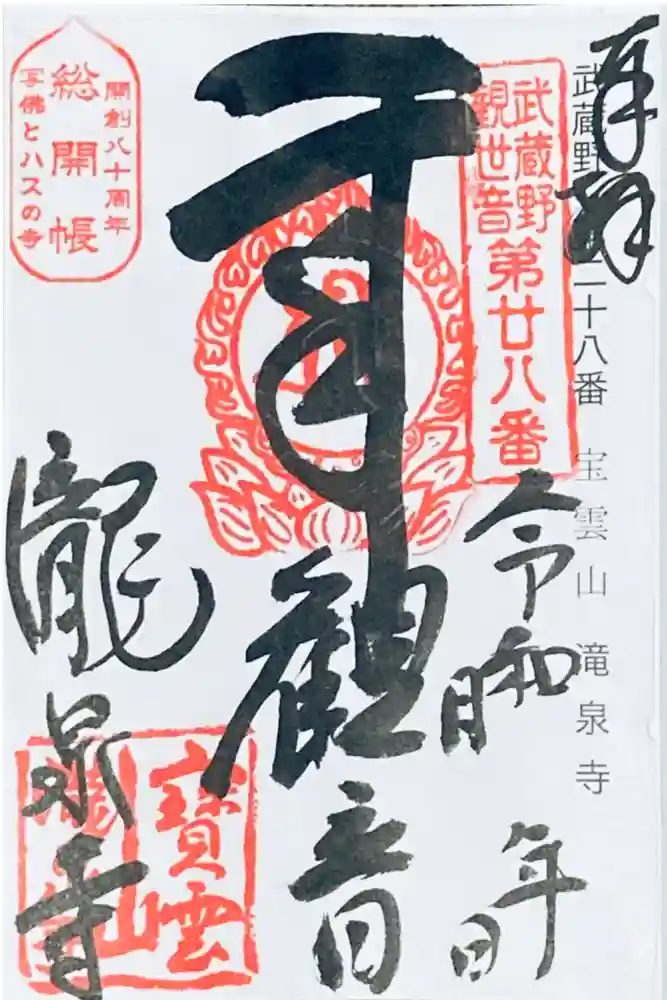 奉拝
武蔵野
二十八番 宝雲山 滝泉寺
武蔵野
観世音
第廿八番
令和 年 月 日
観音
瀧泉寺
開創八十周年
総開帳
写佛とハスの寺
寶雲
山